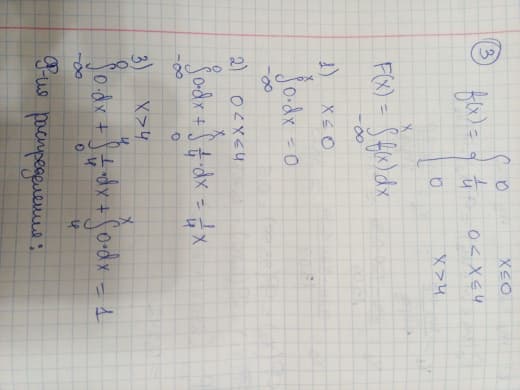 ③ f(x) = { 0   x ≤ 0
1/4   0 < x ≤ 4
0   x > 4
F(x) = ∫_{-∞}^{x} f(x) dx
1) x ≤ 0
∫_{-∞}^{x} 0·dx = 0
2) 0 < x ≤ 4
∫_{-∞}^{0} 0·dx + ∫_{0}^{x} 1/4·dx = 1/4 x
3) x > 4
∫_{-∞}^{0} 0·dx + ∫_{0}^{4} 1/4·dx + ∫_{4}^{x} 0·dx = 1
Ф-ия распределения: